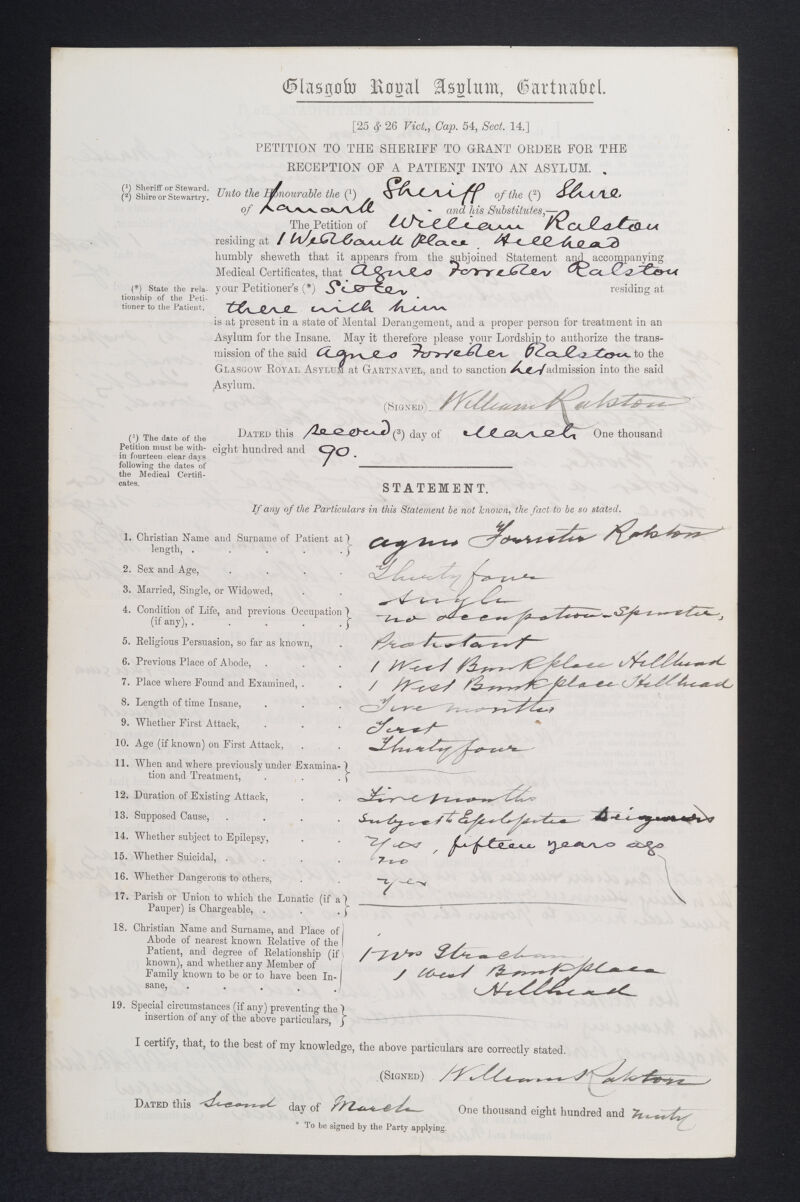 Glasgow Royal Asylum, Gartnavel.
[25 & 26 Vict., Cap. 54, Sect. 14.]
PETITION TO THE SHERIFF TO GRANT ORDER FOR THE
RECEPTION OF A PATIENT INTO AN ASYLUM.
(¹) Sheriff or Steward.
(²) Shire or Stewartry.
Unto the Honourable the (¹) Sheriff of the (²) Shire
of Lanark and his Substitutes,—
The Petition of William Ralston
residing at 1 Westbank Place, Hillhead
humbly sheweth that it appears from the subjoined Statement and accompanying
Medical Certificates, that Agnes Forrester Ralston
(*) State the relationship of the Petitioner to the Patient.
your Petitioner's (*) Sister residing at
there with him
is at present in a state of Mental Derangement, and a proper person for treatment in an
Asylum for the Insane. May it therefore please your Lordship to authorize the trans-
mission of the said Agnes Forrester Ralston to the
GLASGOW ROYAL ASYLUM at GARTNAVEL, and to sanction her admission into the said
Asylum.
(SIGNED) William Ralston
(³) The date of the
Petition must be with-
in fourteen clear days
following the dates of
the Medical Certifi-
cates.
DATED this second (³) day of March One thousand
eight hundred and 90.
STATEMENT.
If any of the Particulars in this Statement be not known, the fact to be so stated.
1. Christian Name and Surname of Patient at
length, . . . . . Agnes Forrester Ralston
2. Sex and Age, . . . . Thirty four
3. Married, Single, or Widowed, . . Single
4. Condition of Life, and previous Occupation
(if any), . . . . . no occupation - Spinster,
5. Religious Persuasion, so far as known, . Protestant
6. Previous Place of Abode, . . . 1 West Bank place Hillhead
7. Place where Found and Examined, . . 1 West Bank place Hillhead
8. Length of time Insane, . . . Five months
9. Whether First Attack, . . . First
10. Age (if known) on First Attack, . . Thirty four
11. When and where previously under Examina-
tion and Treatment, . . .
12. Duration of Existing Attack, . . Five months
13. Supposed Cause, . . . . Subject to Epileptic Seizures
14. Whether subject to Epilepsy, . . Yes, fifteen years ago
15. Whether Suicidal, . . . . no
16. Whether Dangerous to others, . . yes
17. Parish or Union to which the Lunatic (if a
Pauper) is Chargeable, . . .
18. Christian Name and Surname, and Place of
Abode of nearest known Relative of the
Patient, and degree of Relationship (if
known), and whether any Member of
Family known to be or to have been In-
sane, . . . . .
Mrs Strachan
1 West Bank place
Hillhead
19. Special circumstances (if any) preventing the
insertion of any of the above particulars,
I certify, that, to the best of my knowledge, the above particulars are correctly stated.
(SIGNED) William Ralston
DATED this Second day of March One thousand eight hundred and ninety
* To be signed by the Party applying.